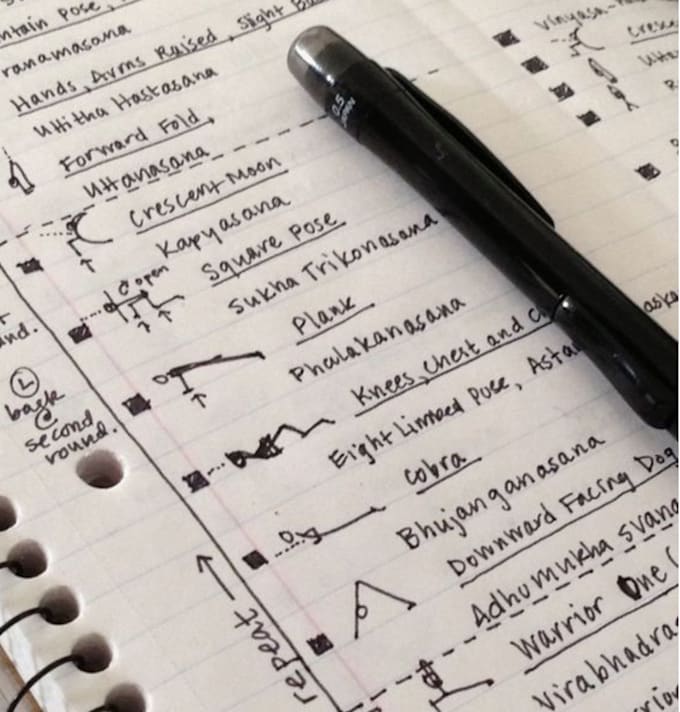 ntain Pose,
ranamasana
Hands, Arms Raised, Slight
Utitha Hastasana
Forward Fold,
Uttanasana
Crescent Moon
Kapyasana
open
Square Pose
Sukha Trikonasana
Plank
Phalakanasana
Knees, Chest and C
Eight Limbed Pose, Asta
Cobra
Bhujanganasana
Downward Facing Dog
Adhomukha Svana
Warrior One (
Virabhadra
nd.
L
back
@
second
round.
repeat
0.5
Vinyasa
Cresce
Utta
aska